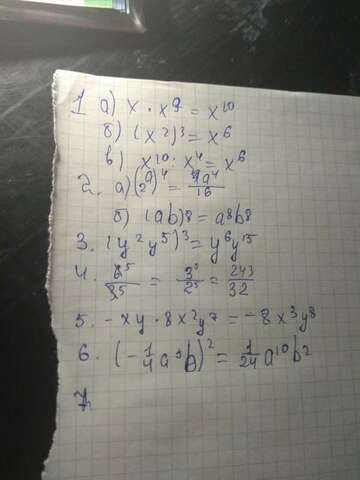 1 а) x · x⁹ = x¹⁰
б) (x²)³ = x⁶
в) x¹⁰ : x⁴ = x⁶
2. а) (a/2)⁴ = a⁴/16
б) (ab)⁸ = a⁸b⁸
3. (y²y⁵)³ = y⁶y¹⁵
4. 6⁵/35 = 3⁵/2⁵ = 243/32
5. -xy · 8x²y⁷ = -8x³y⁸
6. (-1/4 a⁵b)² = 1/24 a¹⁰b²
7.